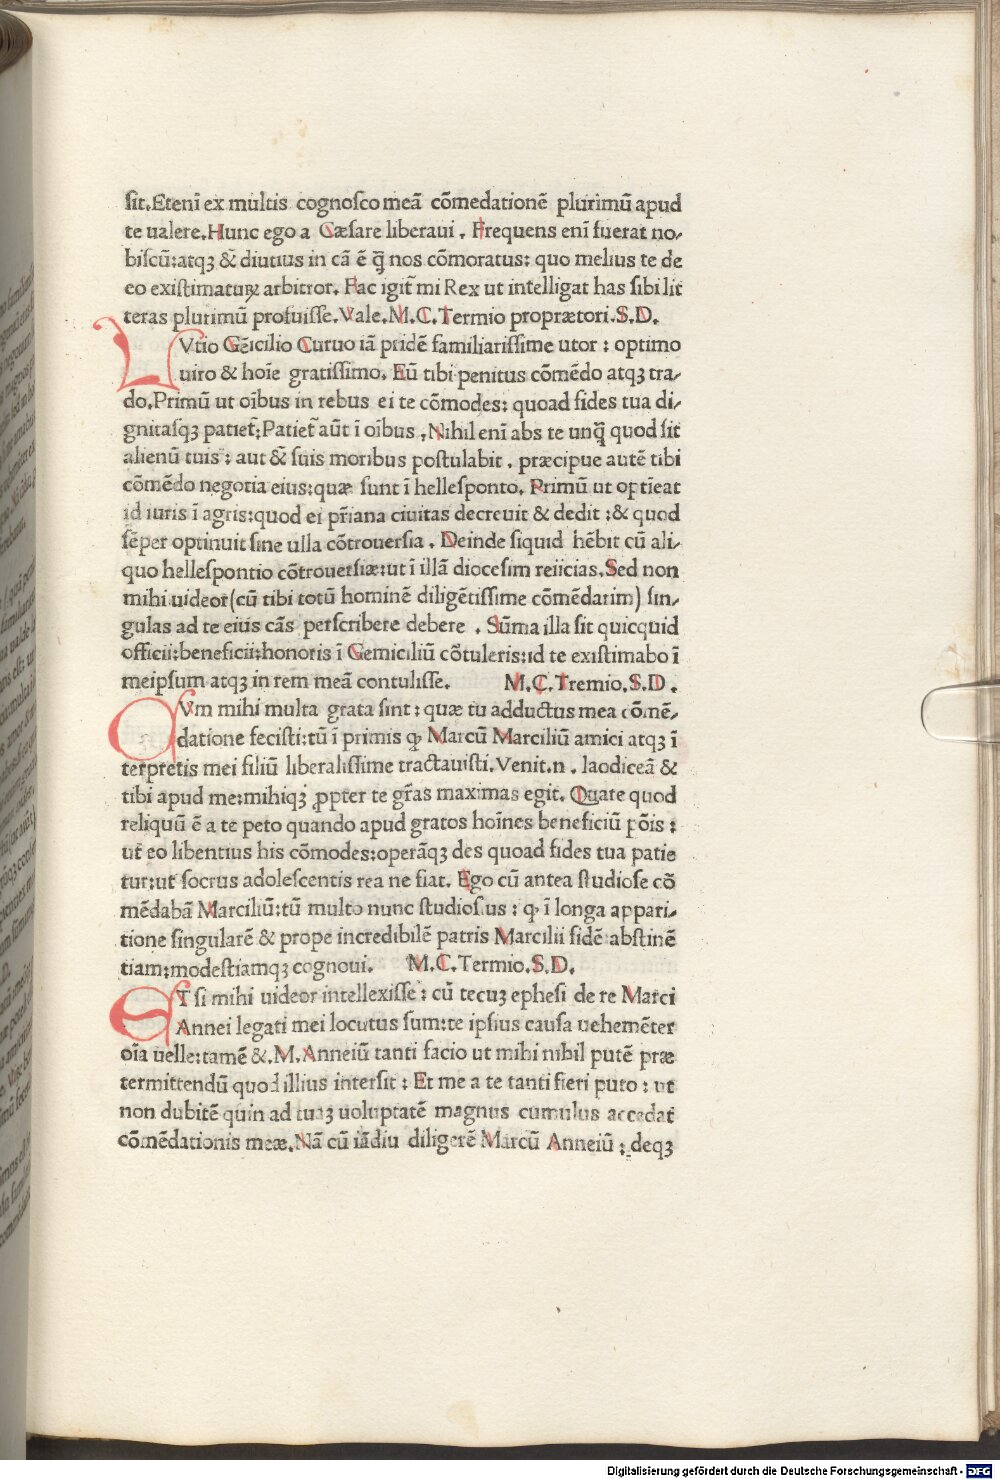 sit.Etenī ex multis cognosco meā cōmedationē plurimū apud
te ualere.Hunc ego a Cæsare liberaui . Frequens enī fuerat no-
biscū:atqꝫ & diutius in cā ē q̄ nos cōmoratus: quo melius te de
eo existimatuꝝ arbitror. Fac igit̄ mi Rex ut intelligat has sibi lit
teras plurimū profuisse.Vale.M.C.Termio proprætori.S.D.
LVtio Gēicilio Curuo iā pridē familiarissime utor : optimo
uiro & hoīe gratissimo. Eū tibi penitus cōmēdo atqꝫ tra-
do.Primū ut oībus in rebus ei te cōmodes: quoad fides tua di-
gnitasqꝫ patiet̄:Patiet̄ aūt ī oībus .Nihil enī abs te unq̄ quod sit
alienū tuis : aut & suis moribus postulabit . præcipue autē tibi
cōmēdo negotia eius:quæ sunt ī hellesponto. Primū ut optīeat
id iuris ī agris:quod ei pr̄iana ciuitas decreuit & dedit :& quod
sēper optinuit sine ulla cōtrouersia . Deinde siquid hēbit cū ali-
quo hellespontio cōtrouersiæ:ut ī illā diocesim reiicias.Sed non
mihi uideor(cū tibi totū hominē diligētissime cōmēdarim) sin-
gulas ad te eius cās perscribere debere . Sūma illa sit quicquid
officii:beneficii:honoris ī Gemiciliū cōtuleris:id te existimabo ī
meipsum atqꝫ in rem meā contulisse. M.C.Tremio.S.D.
CVm mihi multa grata sint : quæ tu adductus mea cōmē-
datione fecisti:tū ī primis ꝙ Marcū Marciliū amici atqꝫ ī
terpretis mei filiū liberalissime tractauisti.Venit.n . laodiceā &
tibi apud me:mihiqꝫ ꝓpter te gr̄as maximas egit. Quare quod
reliquū ē a te peto quando apud gratos hoīnes beneficiū pōis :
ut eo libentius his cōmodes:operāqꝫ des quoad fides tua patie
tur:ut socrus adolescentis rea ne fiat. Ego cū antea studiose cō
mēdabā Marciliū:tū multo nunc studiosius : ꝙ ī longa appari-
tione singularē & prope incredibilē patris Marcilii fidē abstinē
tiam:modestiamqꝫ cognoui. M.C.Termio.S.D.
ET si mihi uideor intellexisse : cū tecuꝫ ephesi de re Marci
Annei legati mei locutus sum:te ipsius causa uehemēter
oīa uelle:tamē &.M.Anneiū tanti facio ut mihi nihil putē præ
termittendū quod illius intersit : Et me a te tanti fieri puto : ut
non dubitē quin ad tuaꝫ uoluptatē magnus cumulus accedat
cōmēdationis meæ.Nā cū iādiu diligerē Marcū Anneiū : deqꝫ
Digitalisierung gefördert durch die Deutsche Forschungsgemeinschaft - DFG